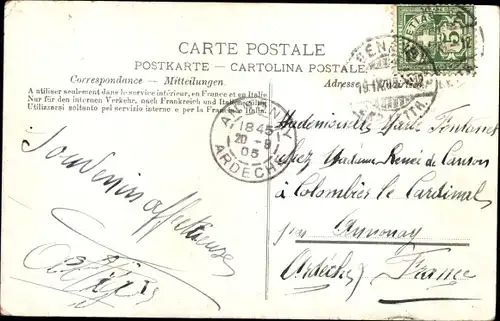 CARTE POSTALE
POSTKARTE - CARTOLINA POSTALE
Correspondance - Mitteilungen. Adresse
A utiliser seulement dans le service intérieur, en France et en Italie.
Nur für den internen Verkehr, nach Frankreich und Italien.
Utilizzarsi soltanto pel servizio interno e per la Francia.
HELVETIA
5
ANNONAY
1845
20-9
05
ARDECHE
Mademoiselle Fontanes
chez Madame Renée de Canson
à Colombier le Cardinal
par Annonay
Ardèche France
Souvenirs affectueuses